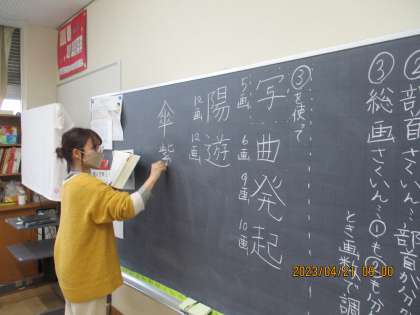 ②部首さくいん…部首が分か
③総画さくいん…①も②も分
とき画数で調
③を使って
写 曲 発 起
5画 6画 9画 10画
陽 遊
12画 12画
傘 紫
2023/04/21 09:00